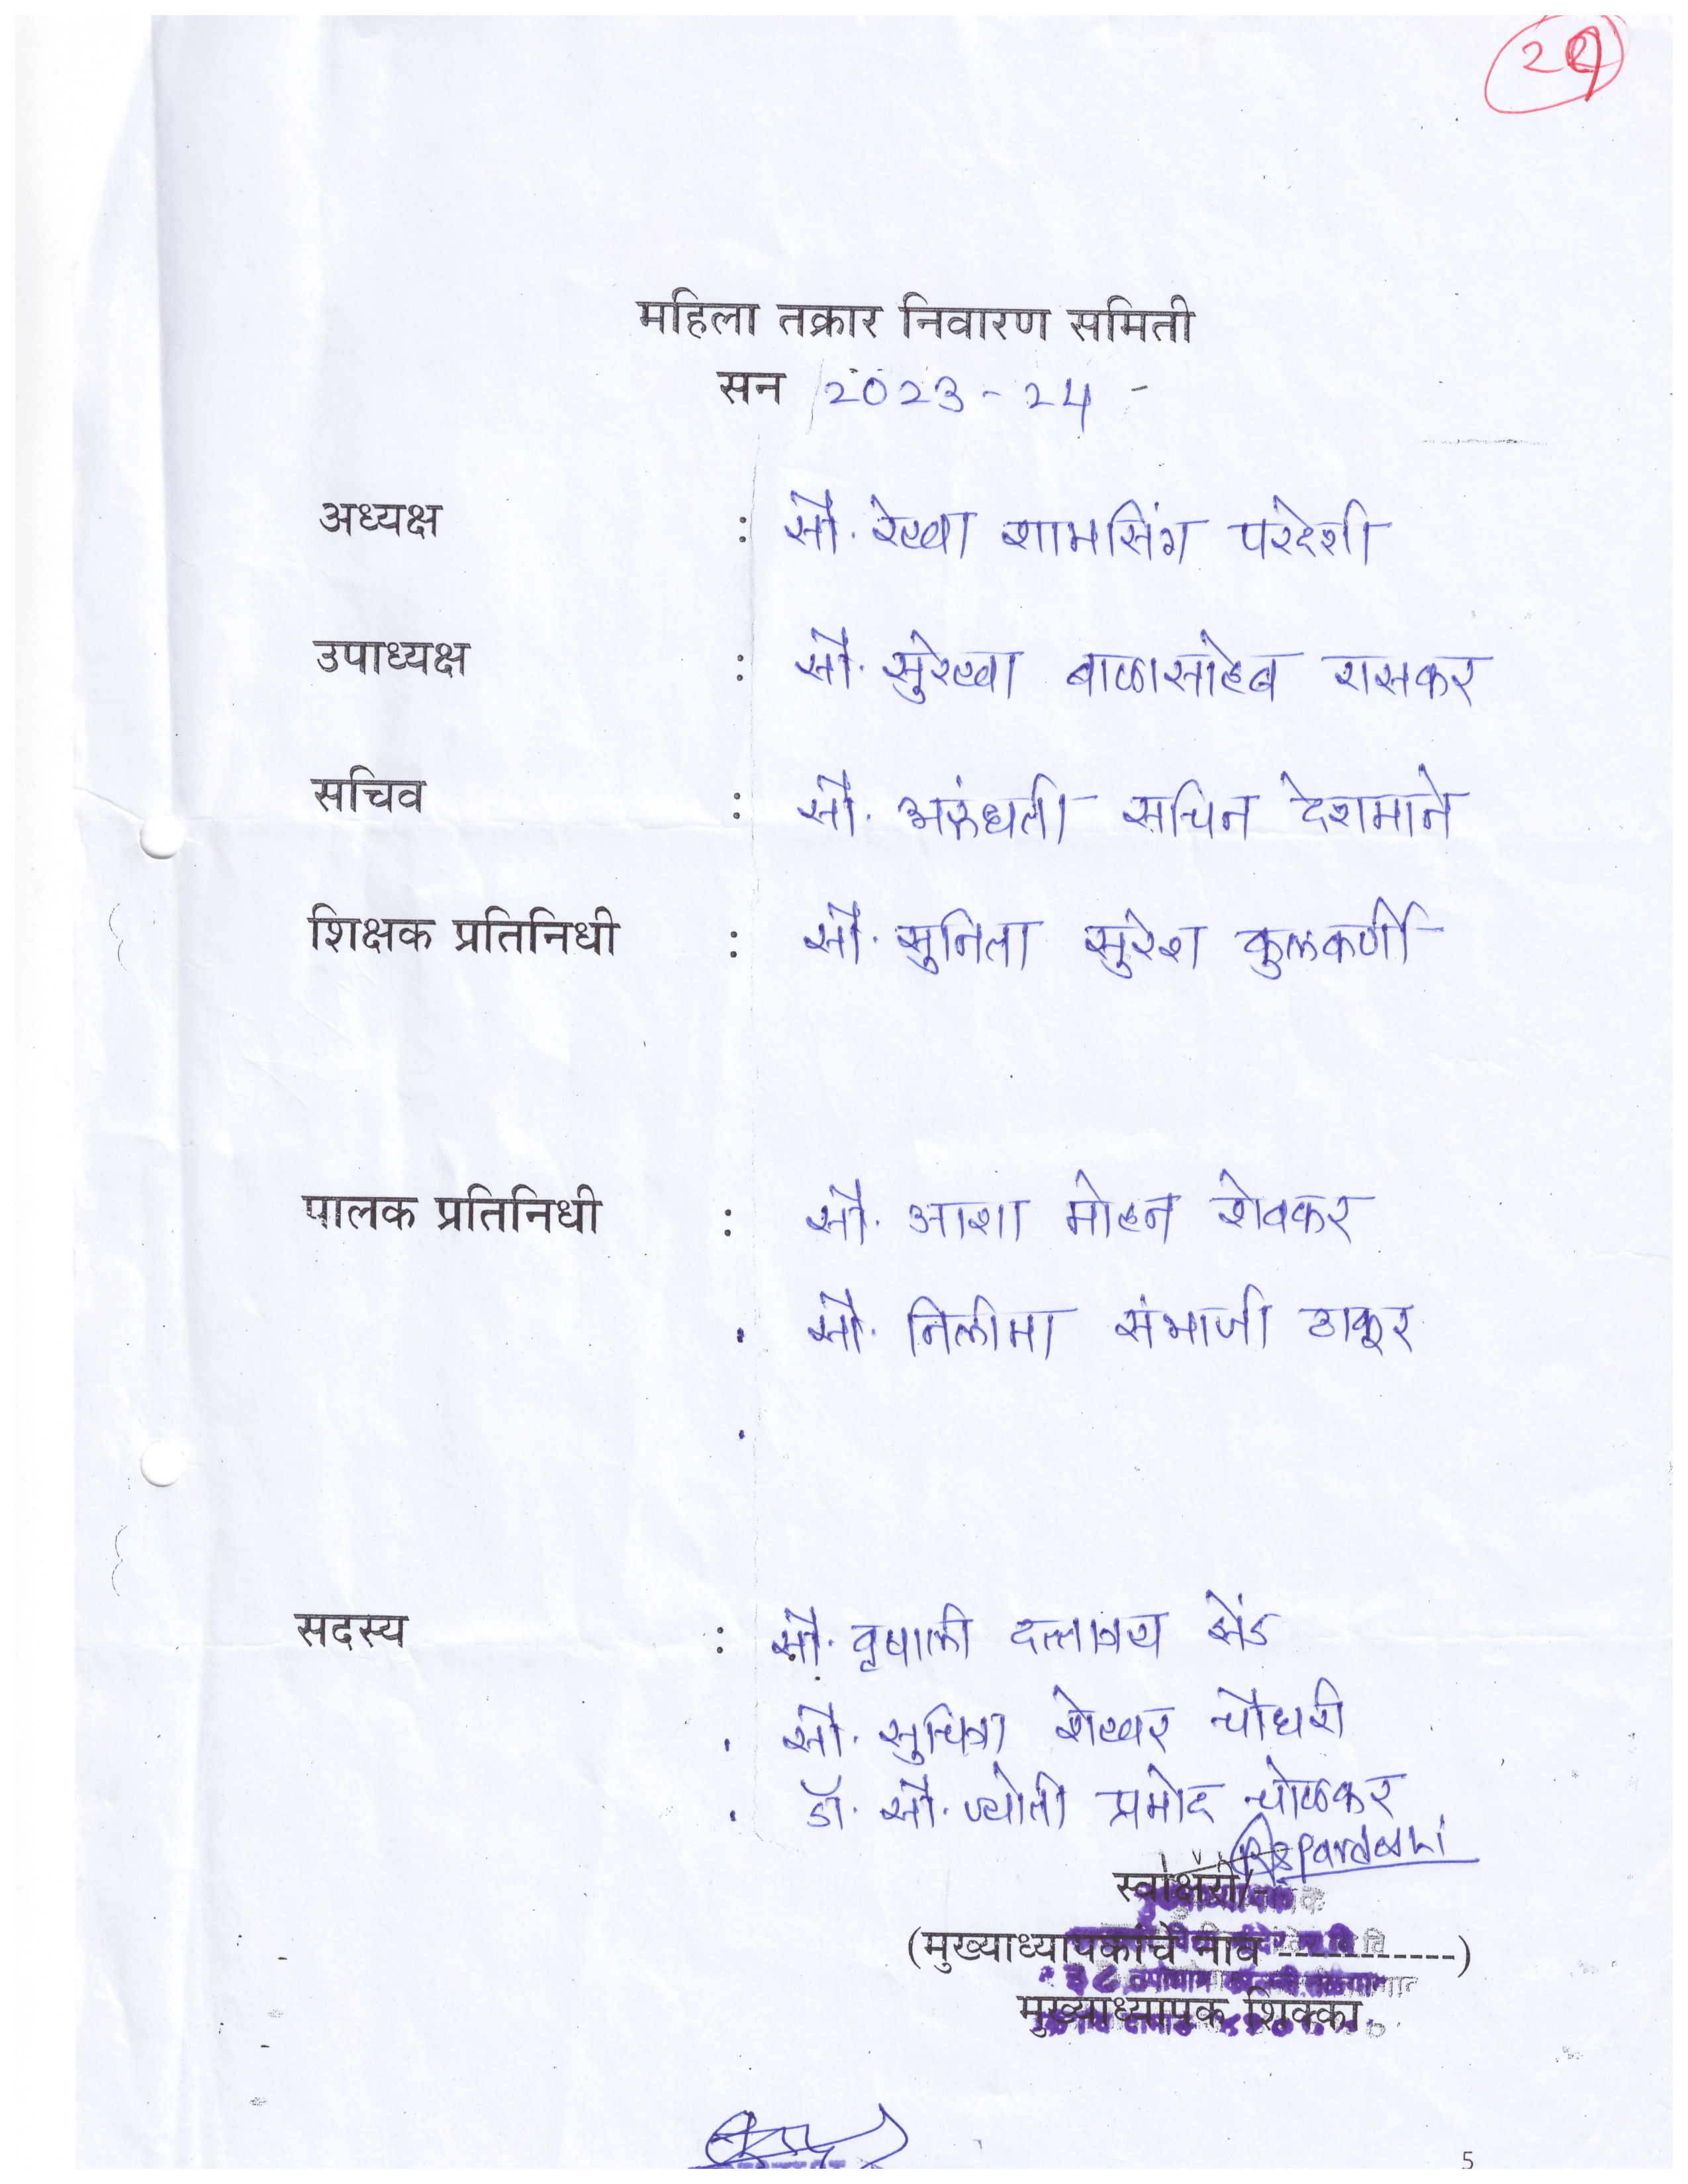 महिला तक्रार निवारण समिती
सन 2023-24
अध्यक्ष : सौ. रेखा शामसिंग परदेशी
उपाध्यक्ष : सौ. सुरेखा बाळासाहेब रासकर
सचिव : सौ. अरुंधती सचिन देशमाने
शिक्षक प्रतिनिधी : सौ. सुनिता सुरेश कुलकर्णी
पालक प्रतिनिधी : सौ. आशा मोहन शेवकर
सौ. निलीमा संभाजी ठाकूर
सदस्य : सौ. वृषाली दत्तात्रय झेंडे
सौ. सुचित्रा शेखर चौधरी
डॉ. सौ. ज्योती प्रमोद चोळकर
स्वाक्षरी/-
(मुख्याध्यापकांचे नाव ------------)
मुख्याध्यापक शिक्का
5